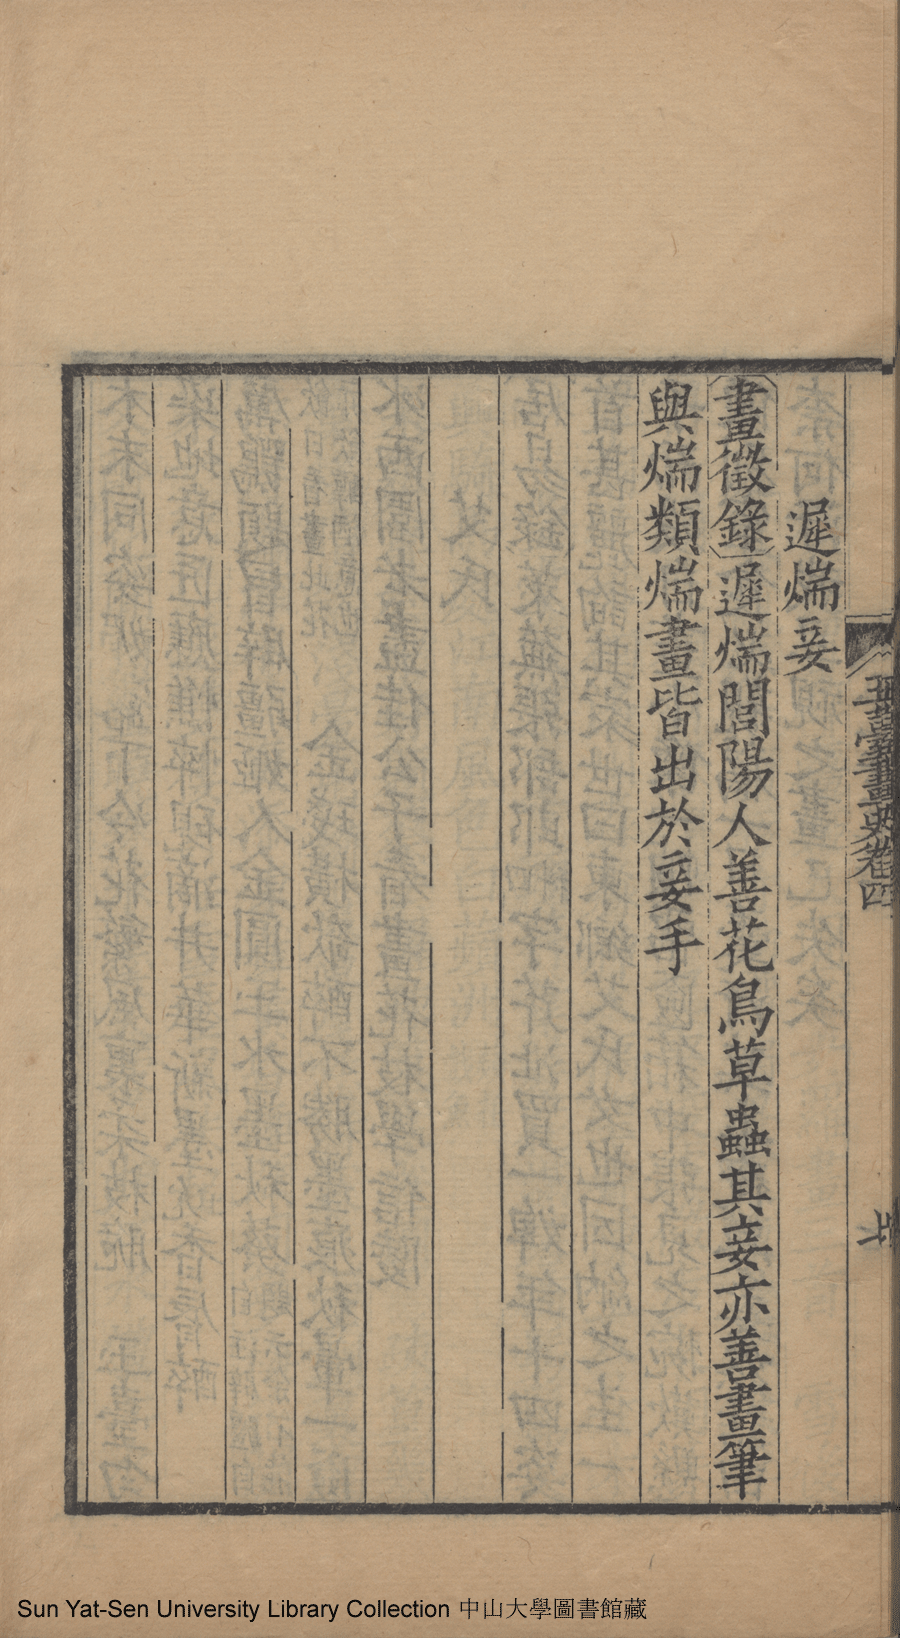 遲煓妾
畫徵錄遲煓閭陽人善花鳥草蟲其妾亦善畫筆
與煓類煓畫皆出於妾手
玉臺畫史卷四
Sun Yat-Sen University Library Collection 中山大學圖書館藏